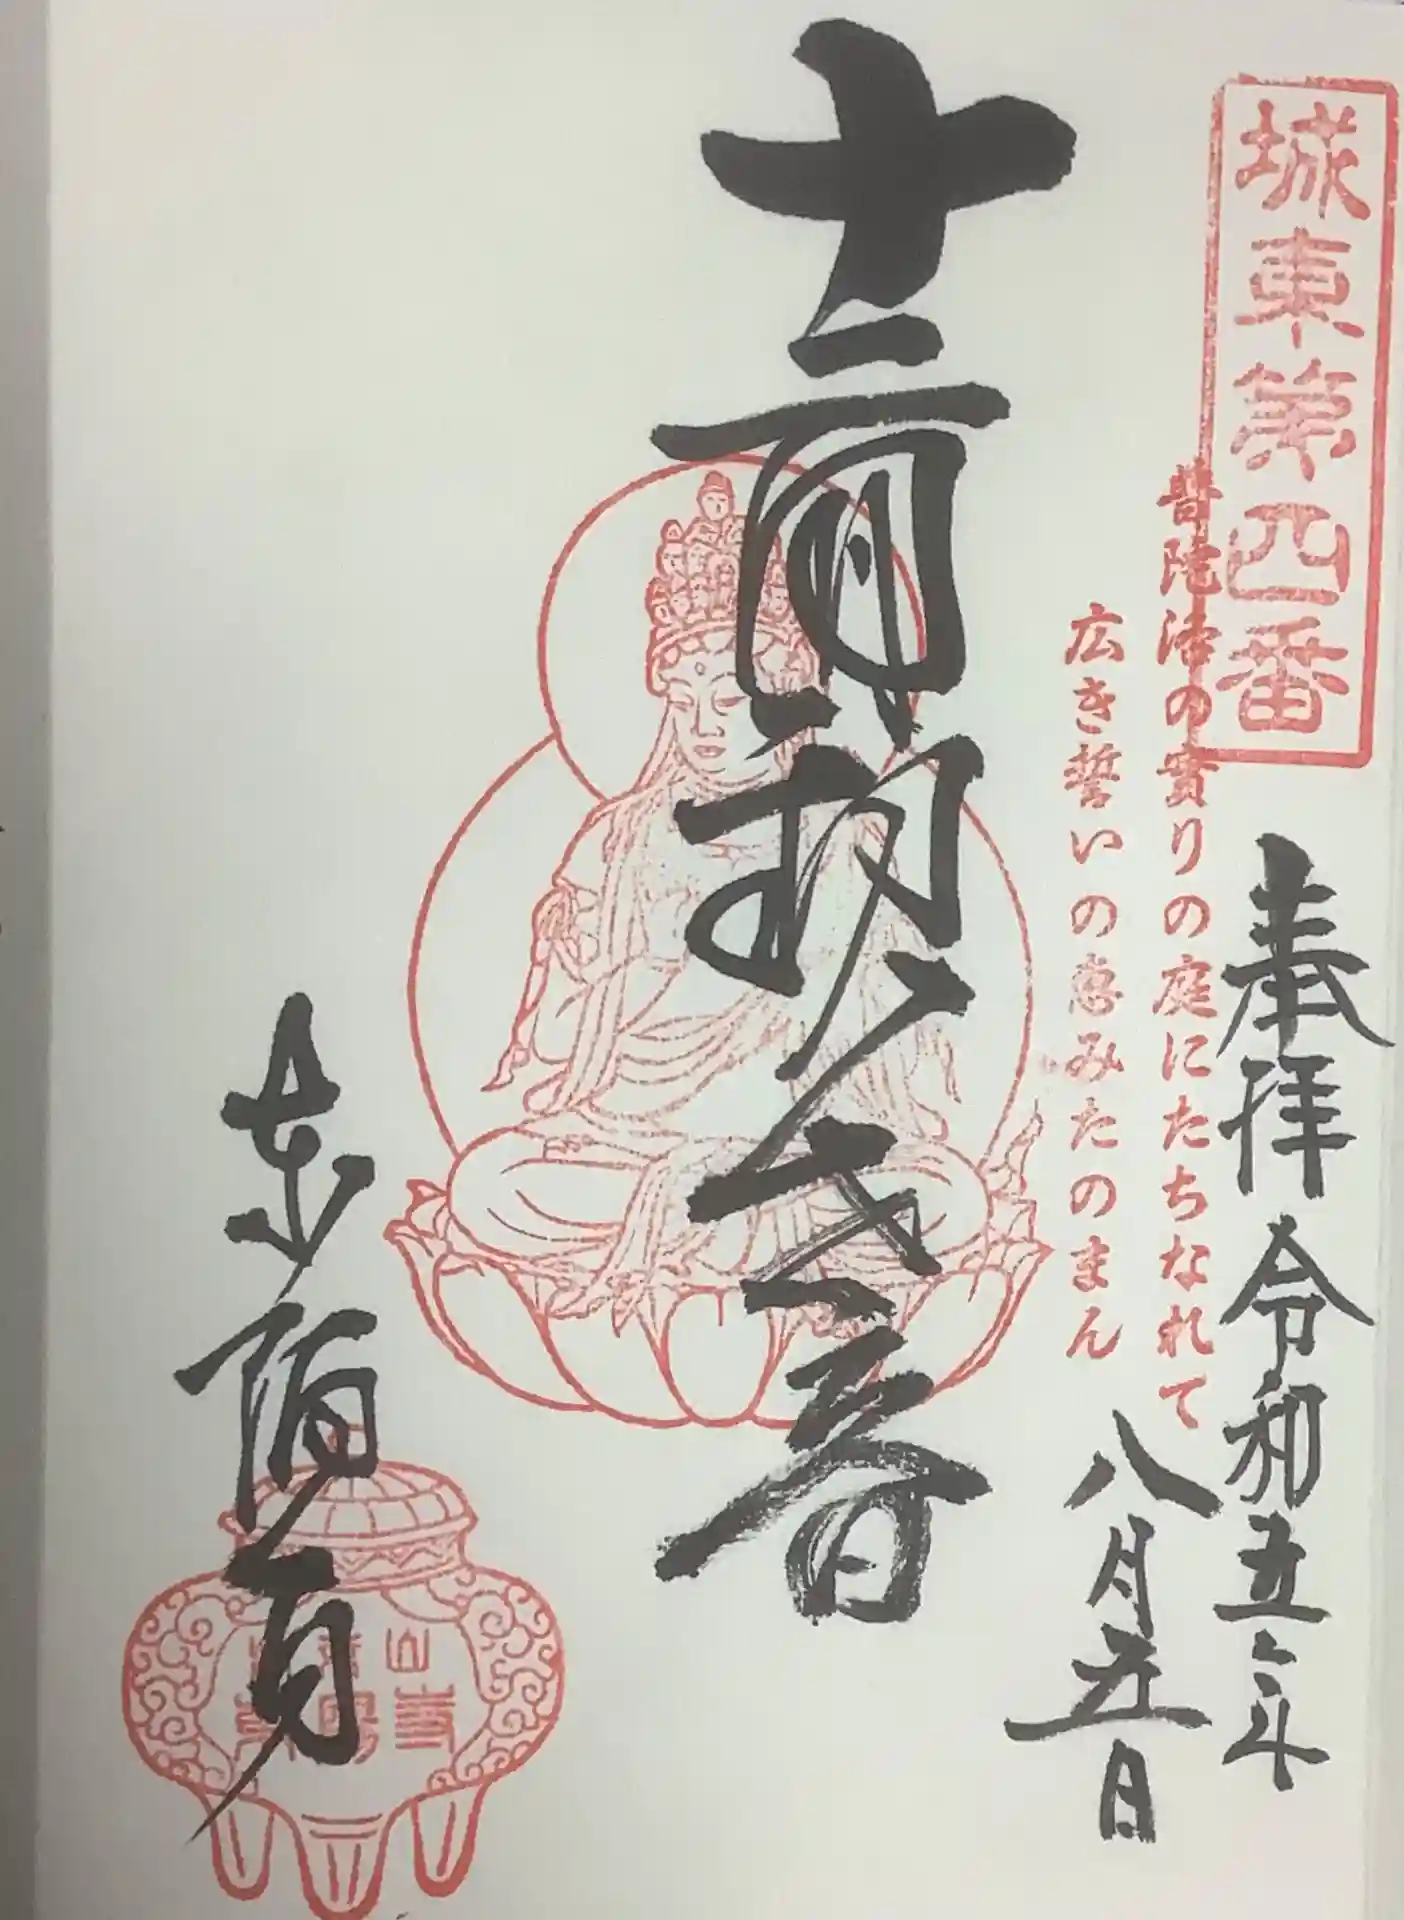 城東第四番
奉拝 令和五年
八月五日
普陀洛の實りの庭にたちなれて
広き誓いの恵みたのまん
十一面観世音
東陽寺